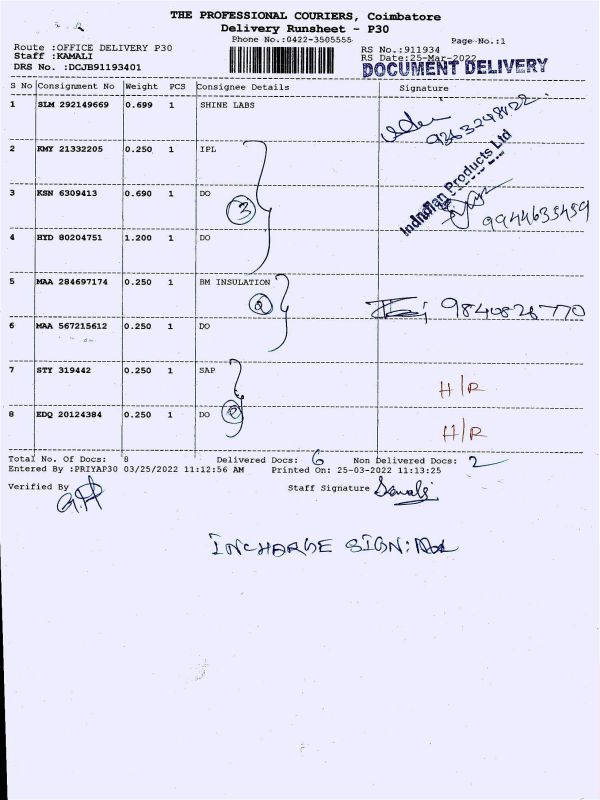 THE PROFESSIONAL COURIERS, Coimbatore
Delivery Runsheet - P30
Phone No.:0422-3505555
Page No.:1
Route :OFFICE DELIVERY P30
RS No.:911934
Staff :KAMALI
RS Date:25-Mar-2022
DRS No. :DCJB91193401
DOCUMENT DELIVERY
S No Consignment No Weight PCS Consignee Details Signature
1 SLM 292149669 0.699 1 SHINE LABS
9363248422
2 KMY 21332205 0.250 1 IPL
Products Ltd
3 KSN 6309413 0.690 1 DO
3
9944635459
4 HYD 80204751 1.200 1 DO
5 MAA 284697174 0.250 1 BM INSULATION
2 9840826770
6 MAA 567215612 0.250 1 DO
7 STY 319442 0.250 1 SAP
H/R
8 EDQ 20124384 0.250 1 DO
2
H/R
Total No. Of Docs: 8 Delivered Docs: 6 Non Delivered Docs: 2
Entered By :PRIYAP30 03/25/2022 11:12:56 AM Printed On: 25-03-2022 11:13:25
Verified By Staff Signature
INCHARGE SIGN: